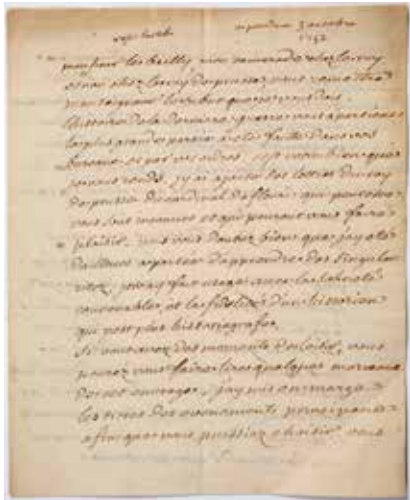 a potsdam 3 octobre
1752
monsieur le bailly, mon camarade chez le roy
et non chez le roy de prusse, vous remettra
monseigneur le tribut que je vous dois
l'histoire de la derniere guerre vous appartient
la plus grande partie a eté faitte dans vos
bureaux et par vos ordres. c'est votre bien que je
vous rends. j'y ai ajouté des lettres du roy
de prusse au cardinal de fleuri qui peutetre
vous sont inconnues et qui pouront vous faire
plaisir. vous vous doutez bien que j'ay eté
d'ailleurs a portée d'apprendre des singulari
tez. j'en ay fait usage avec la sobrieté
convenable et la fidelité d'un historien
qui n'est plus historiografe.
si vous avez des moments de loisir, vous
pourez vous faire lire quelques morceaux
de cet ouvrage. j'ay mis en marge
les titres des evenements principaux
afin que vous puissiez choisir. vous